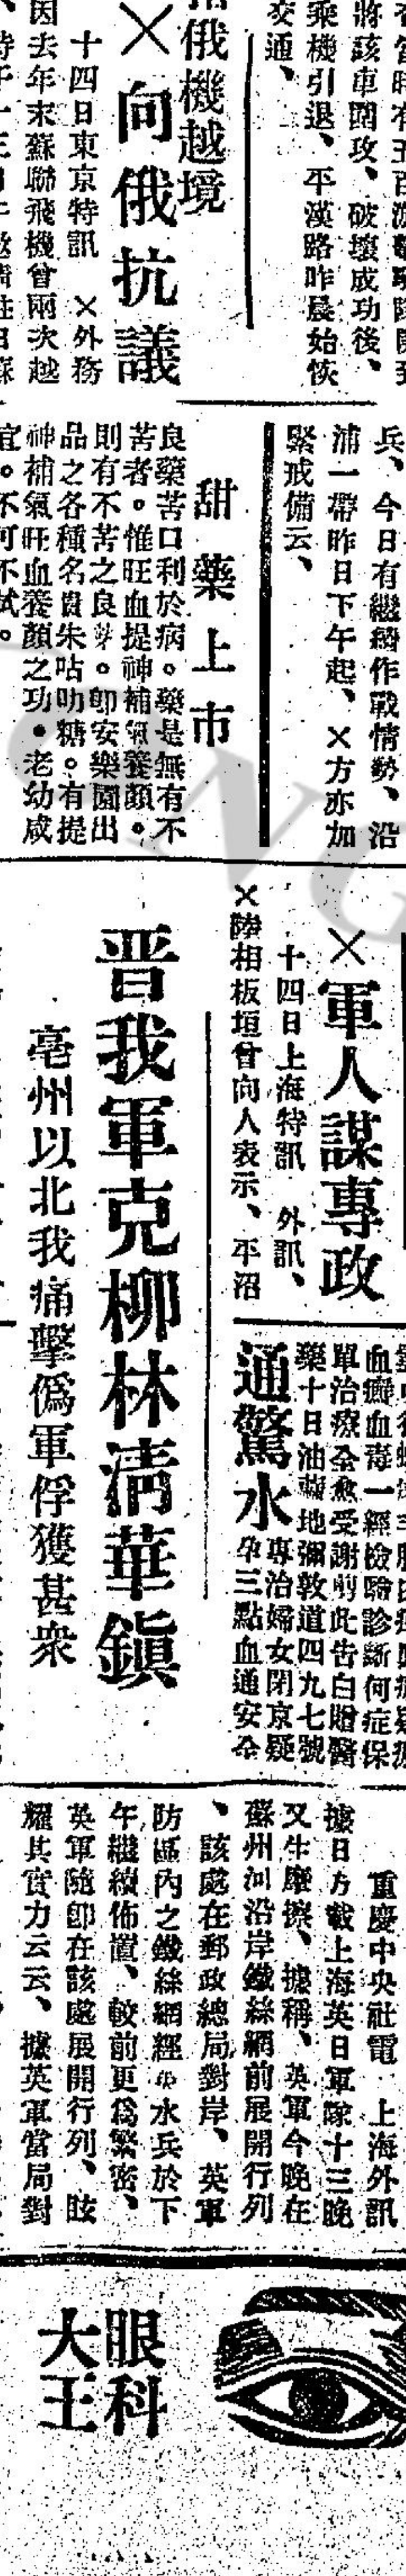 將該車圍攻、破壞成功後、
乘機引退、平漢路昨晨始恢
交通、
俄機越境
×向俄抗議
十四日東京特訊　×外務
因去年末蘇聯飛機曾兩次越
兵、今日有繼續作戰情勢、沿
浦一帶昨日下午起、×方亦加
緊戒備云、
甜藥上市
良藥苦口利於病。藥是無有不
苦者。惟旺血提神補氣養顏。
則有不苦之良藥。卽安樂園出
品之各種名貴朱咕叻糖。有提
神補氣旺血養顏之功。老幼咸
宜。不可不試。
×軍人謀專政
十四日上海特訊　外訊、
×陸相板垣曾向人表示、平沼
晋我軍克柳林淸華鎭
亳州以北我痛擊僞軍俘獲甚衆
血癰血毒一經檢驗診斷何症保
單治療全愈受謝剪此告白贈醫
藥十日油蔴地彌敦道四九七號
通驚水
專治婦女閉京疑
孕三點血通安全
重慶中央社電　上海外訊
據日方載上海英日軍隊十三晚
又生摩擦、據稱、英軍今晚在
蘇州河沿岸鐵絲網前展開行列
、該處在郵政總局對岸、英軍
防區內之鐵絲網經　水兵於下
午繼續佈置、較前更爲緊密、
英軍隨卽在該處展開行列、眩
耀其實力云云、據英軍當局對
眼科
大王